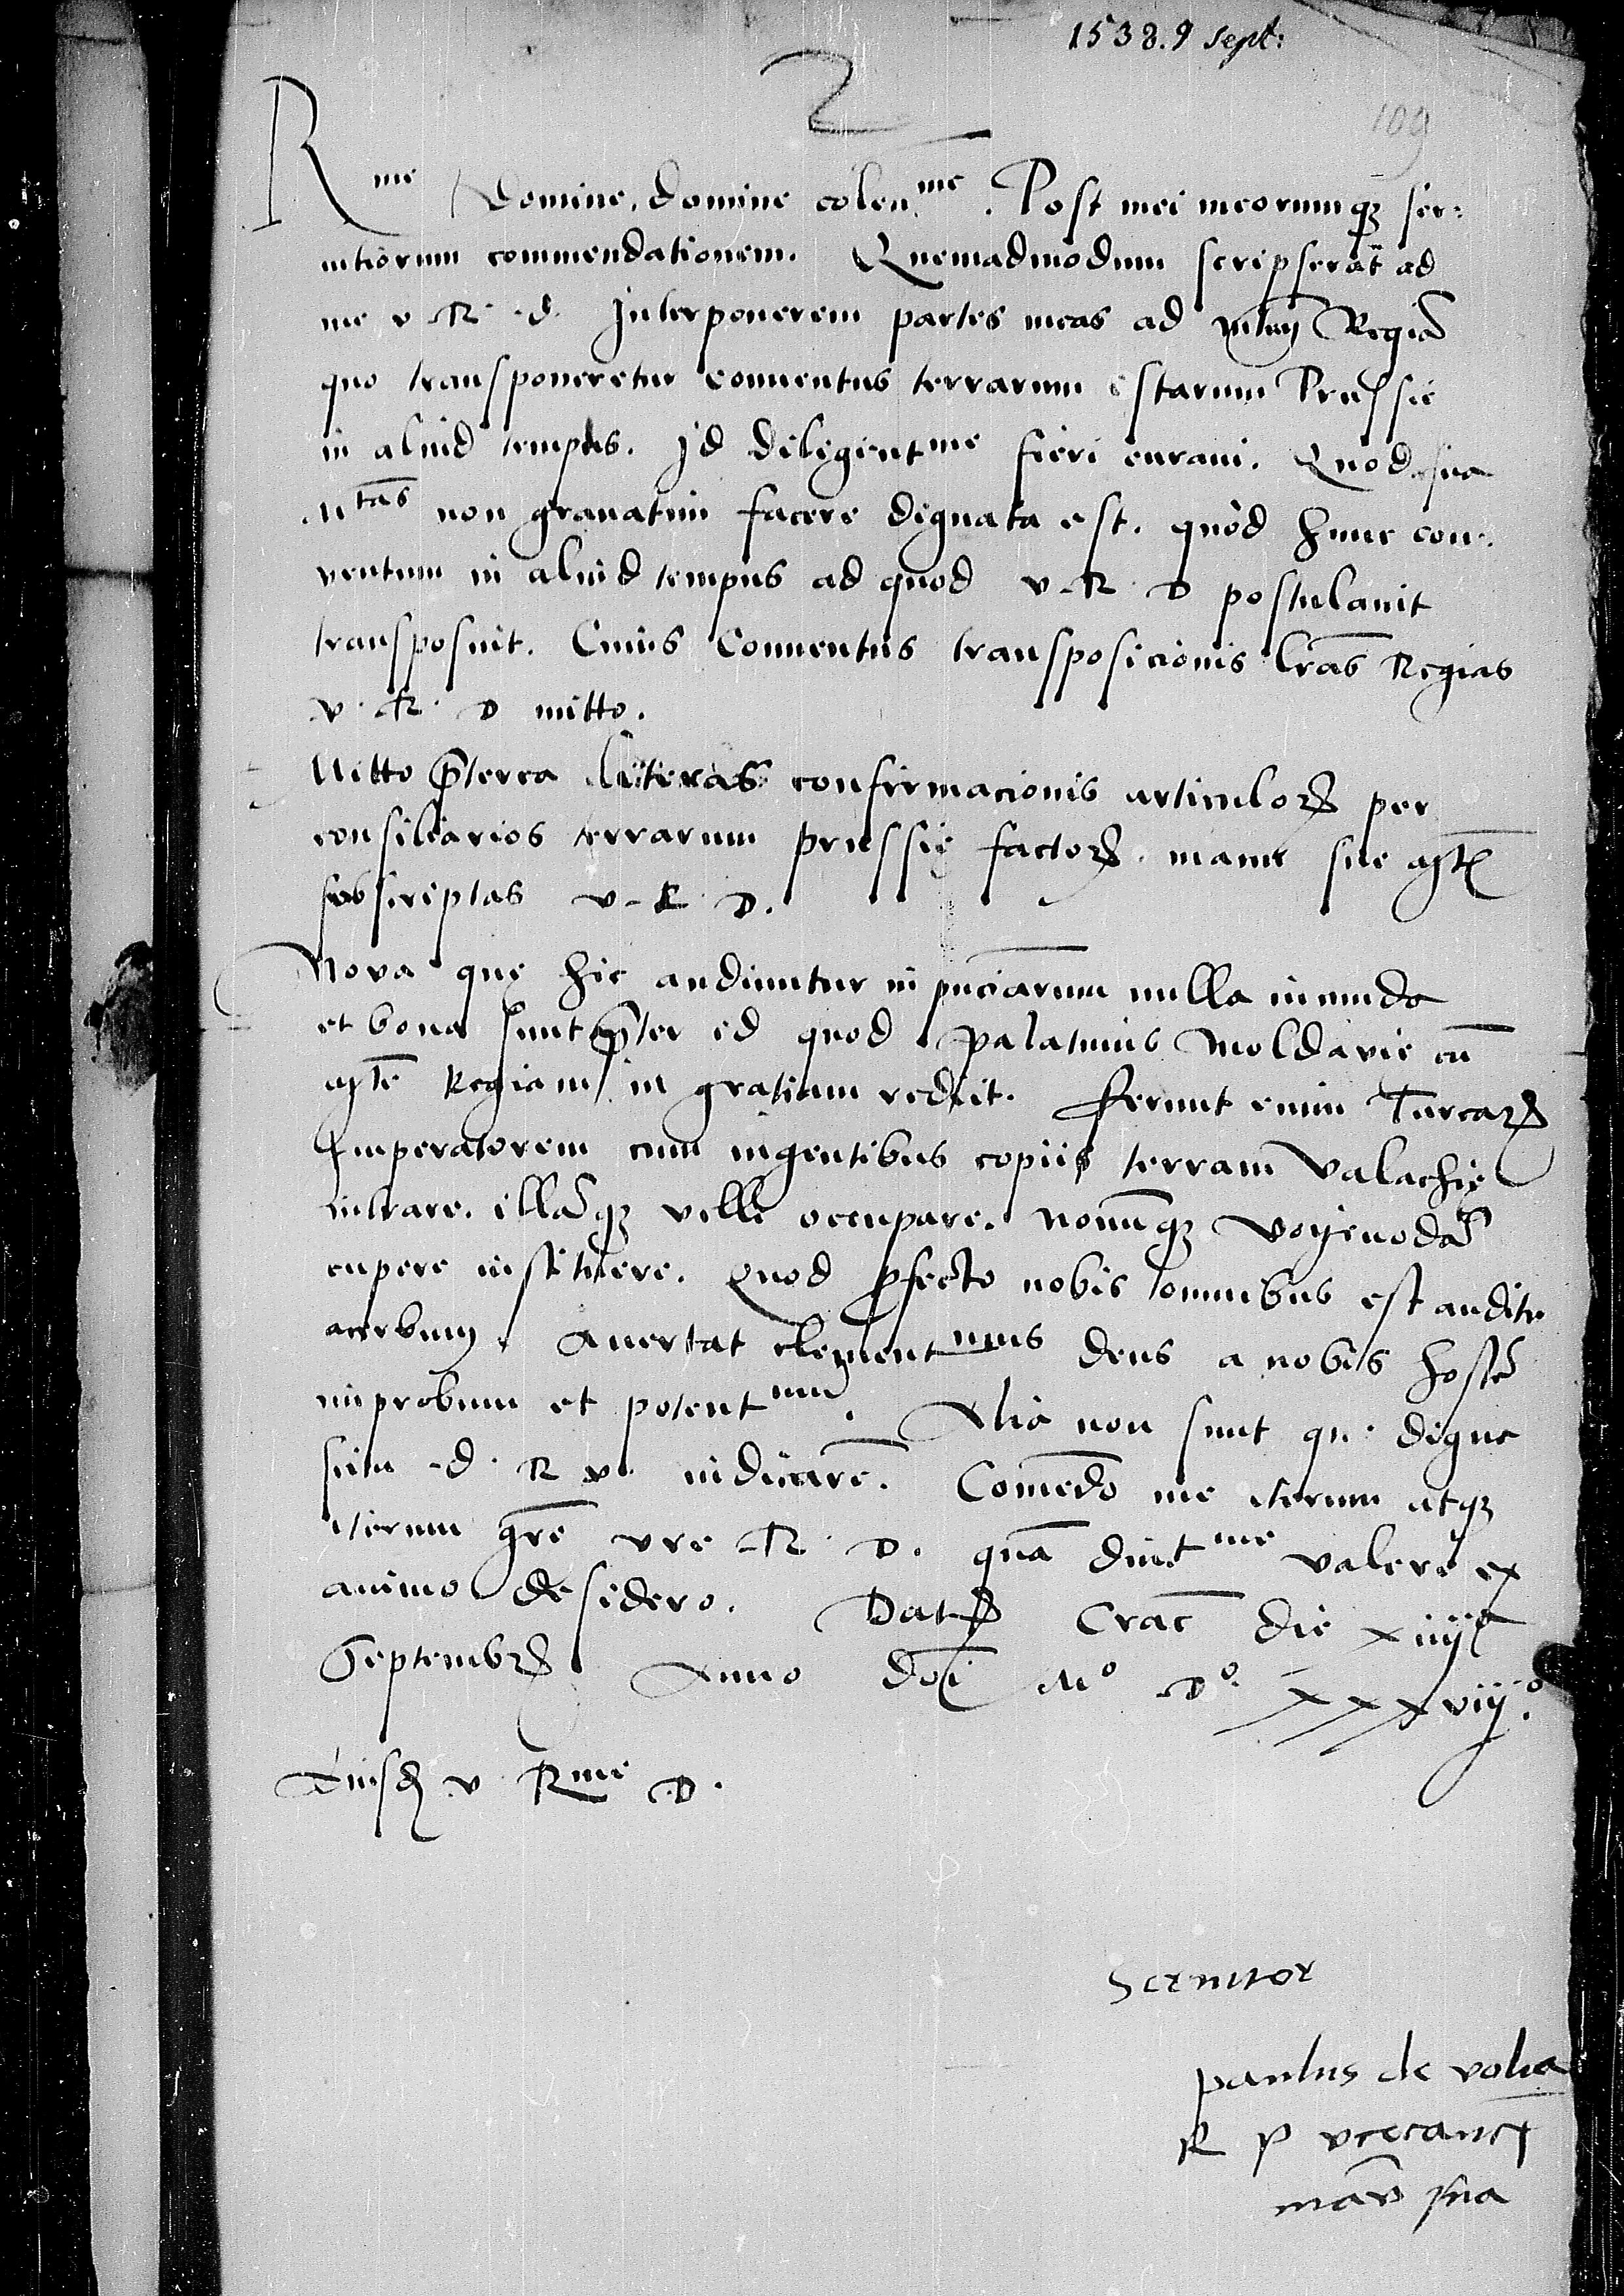 1538. 9 Sept:
109
R me Domine, domine colen me. Post mei meorumq ser:
uitiorum commendationem. Quemadmodum scripserat ad
me v. R. d. Interponerem partes meas ad Regiã
quo transponeretur conuentus terrarum istarum Prussie
in aliud tempus. Id diligent me fieri curaui. Quod sua
M tas non grauatim facere dignata est. quòd hunc con:
ventum in aliud tempus ad quod v. R. D postulauit
transposuit. Cuius Conuentus transposicionis lras Regias
v. R. D mitto.
Mitto pterea literas confirmacionis articulorꝝ per
consiliarios terrarum prussię factorꝝ manu sue
subscriptas v. R. D.
Nova quę hic audiuntur in pnciarum nulla iucunda
et bona sunt pter id quod palatinus Moldavie cũ
Regiam in gratiam rediit. Ferunt enim Turcarꝝ
Imperatorem cum ingentibus copiis terram Valachię
intrare. illãq velle occupare. nouũq voyeuodã
cupere instituere. Quod pfecto nobis omnibus est auditu
acerbum. Auertat clement mus deus a nobis hostẽ
improbum et potent mũ. Alia non sunt que digne
sint d. R v. indicare. Comẽdo me iterum atq
iterum gre vre R. D. quã diut me valere ex
animo desidero. Datꝝ Crac die xiiij
Septembrꝝ Anno dñi M° D° xxxviij°.
Eiusdꝫ v. Rme D.
Seruitor
paulus de volia
R P vicecanc
manu sua